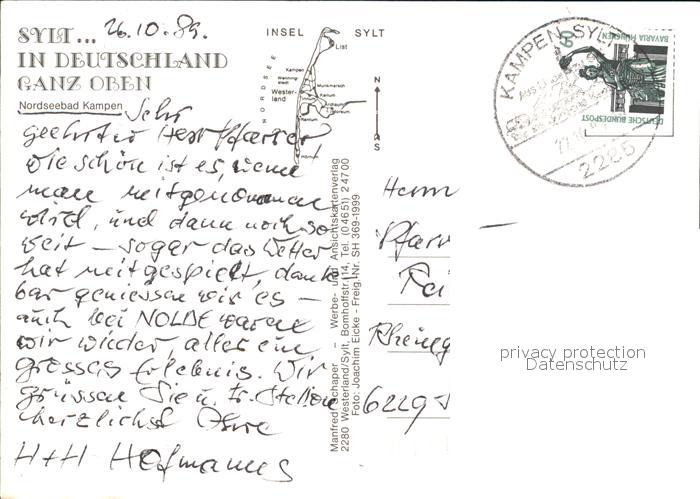 SYLT... 26.10.89.
IN DEUTSCHLAND
GANZ OBEN
Nordseebad Kampen
Sehr
geehrter Herr Pfarrer
wie schön ist es, wenn
man mitgenommen
wird, und dann noch so
weit – sogar das Wetter
hat mitgespielt, dank-
bar geniessen wir es –
auch bei NOLDE waren
wir wieder alles ein
grosses Erlebnis. Wir
grüssen Sie u. Fr.
herzlichst Ihre
H+H Hofmanns
INSEL SYLT
NORDSEE
List
Kampen
Wenning-
stedt
Munkmarsch
Wester-
land
Keitum
Archsum
Morsum
Rantum
Hörnum
N
S
Manfred Schaper – Werbe- und Ansichtskartenverlag
2280 Westerland/Sylt, Bomhoffstr. 14, Tel. (0 46 51) 2 47 00
Foto: Joachim Eicke - Freig. Nr. SH 369-1999
KAMPEN, SYLT
2285
60
BAVARIA MÜNCHEN
DEUTSCHE BUNDESPOST
Herrn
Pfarr
Rheing
6229
privacy protection
Datenschutz